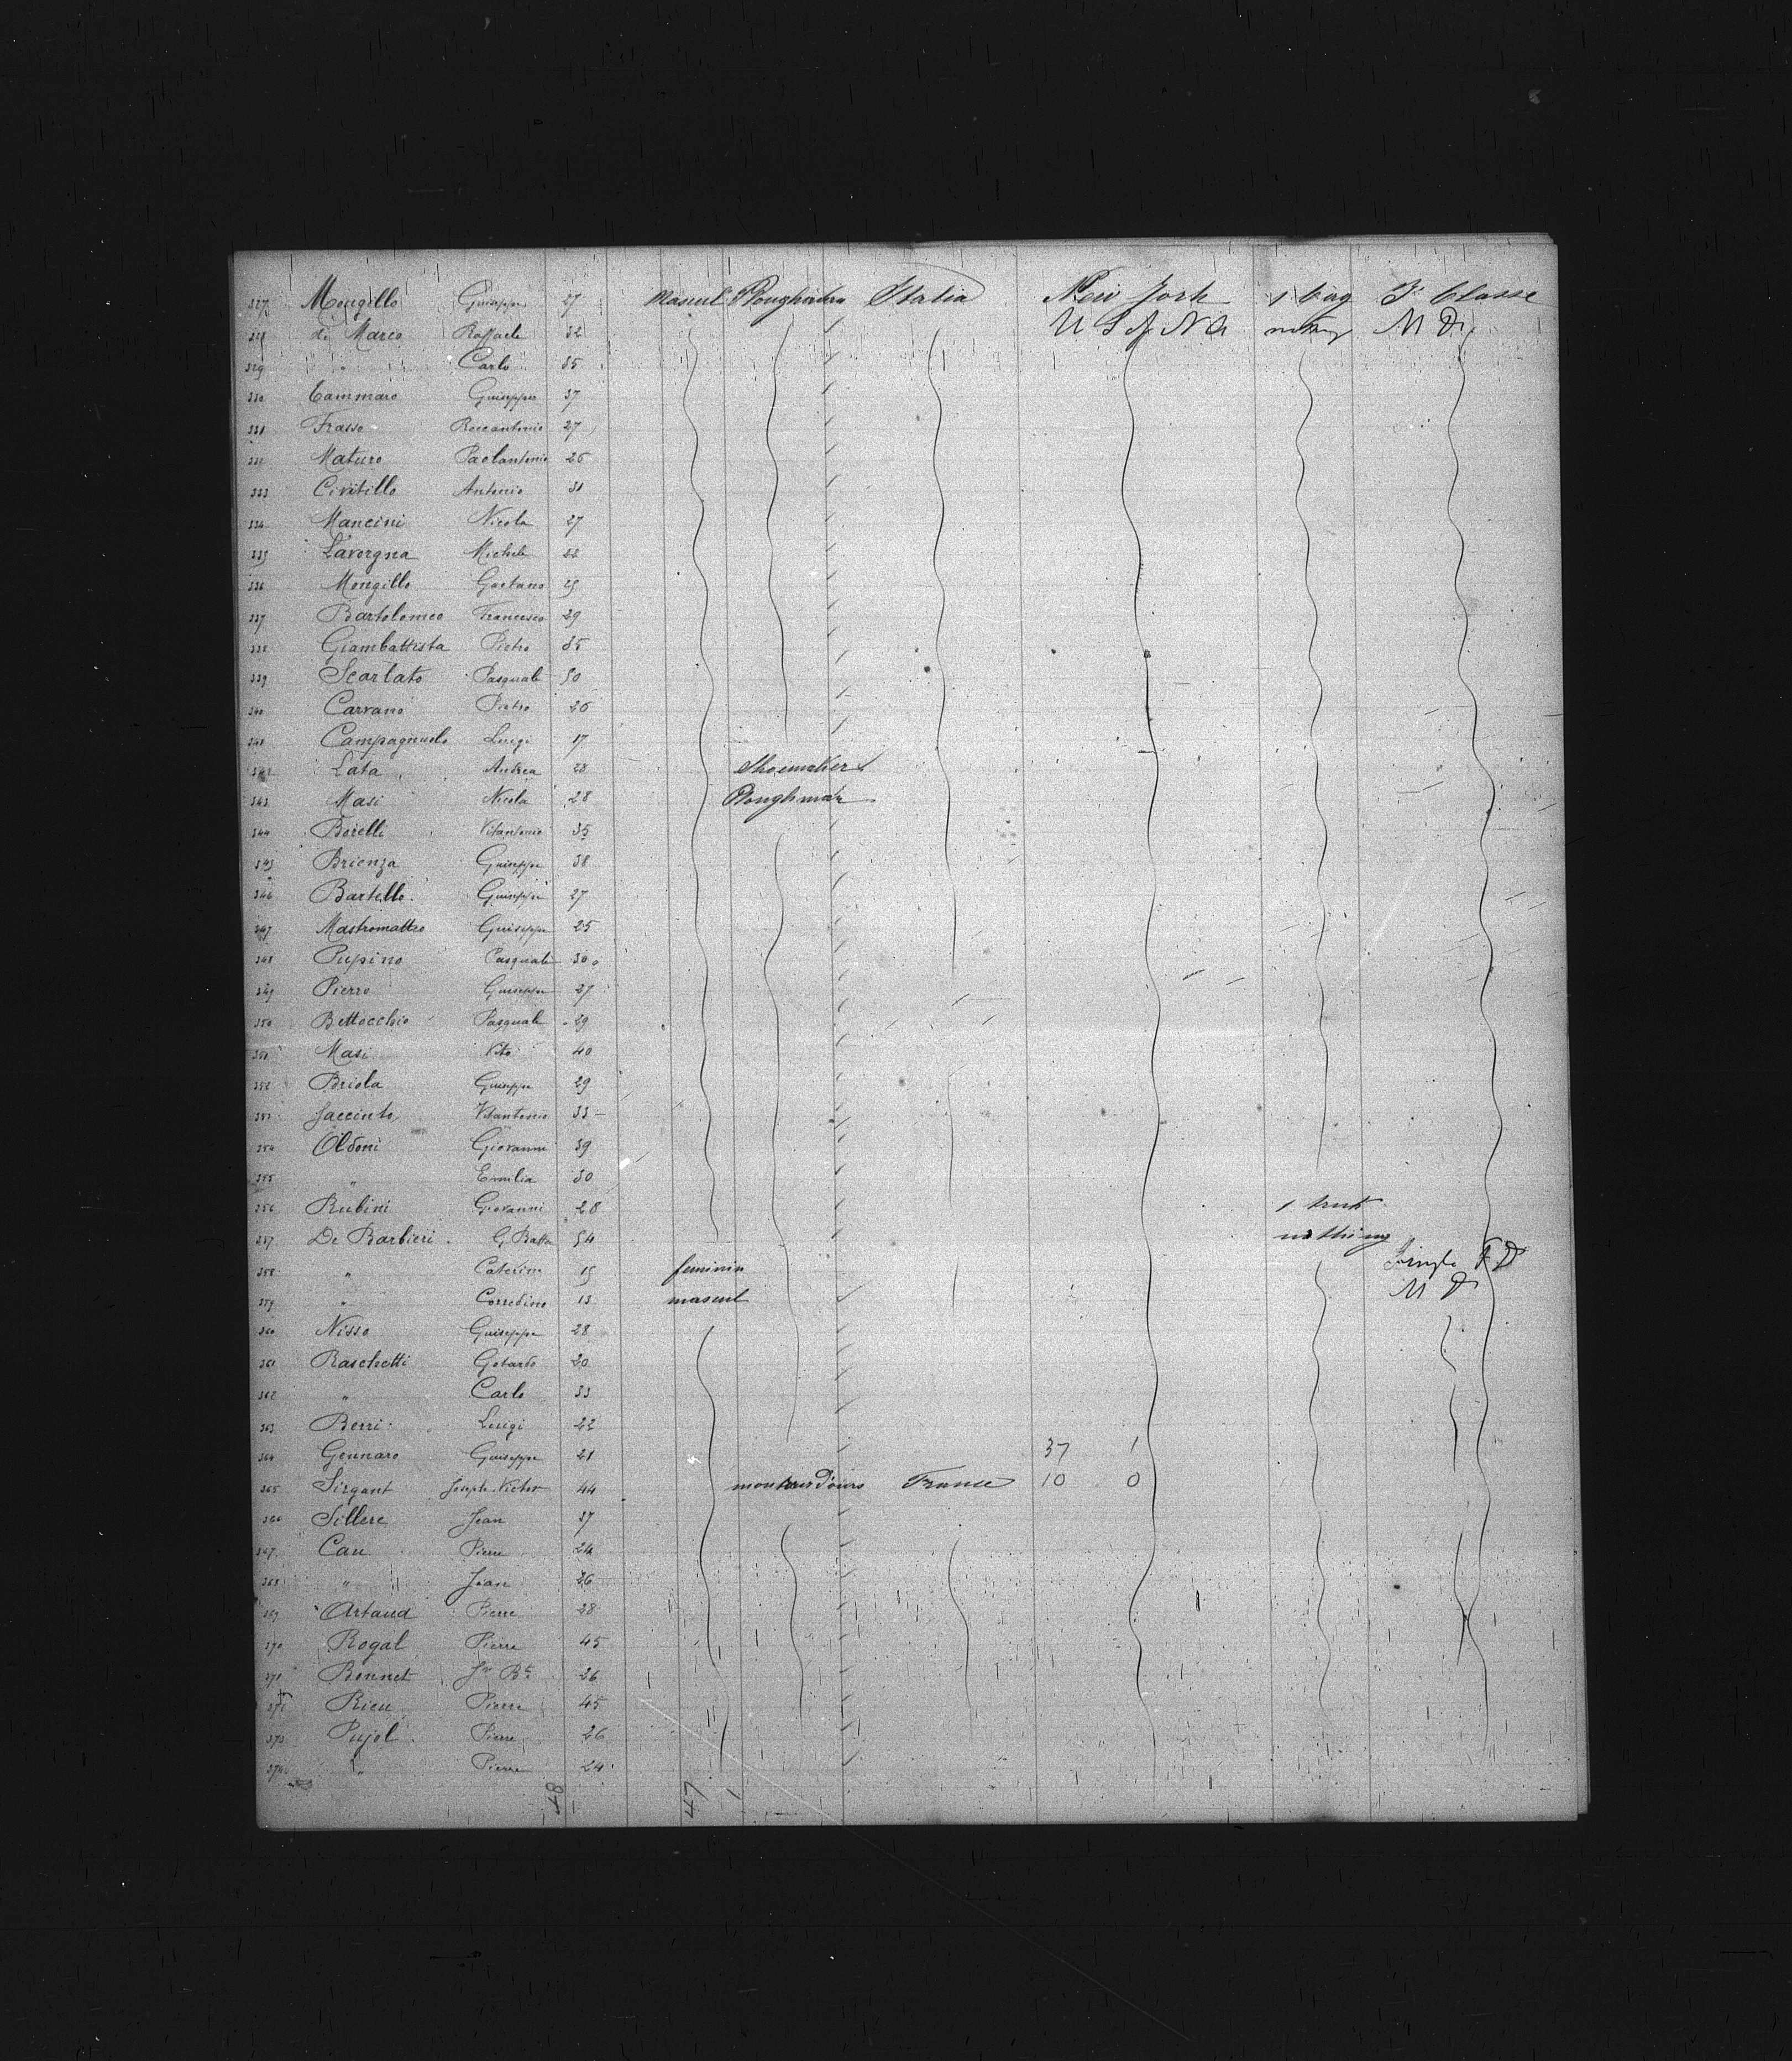 327 Mongillo Guiseppe 27 Mascul Ploughman Italia New York 1 bag 3e Classe
328 di Marco Raffaele 32 U S A N A nothing M D
329 " Carlo 35
330 Cammaro Guiseppe 37
331 Frasso Roccantonio 27
332 Maturo Paolantonio 26
333 Civitillo Antonio 31
334 Mancini Nicola 27
335 Lavorgna Michele 22
336 Mongillo Gaetano 25
337 Bartolomeo Francesco 29
338 Giambattista Pietro 35
339 Scarlato Pasquale 50
340 Carvano Pietro 26
341 Campagnuolo Luigi 17
342 Lata Andrea 28 Shoemaker
343 Masi Nicola 28 Ploughman
344 Borelli Vitantonio 35
345 Brienza Guiseppe 38
346 Bartello Guiseppe 27
347 Mastromatteo Guiseppe 25
348 Pupino Pasquale 30
349 Pierro Guiseppe 27
350 Bettocchio Pasquale 29
351 Masi Vito 40
352 Briola Guiseppe 29
353 Jaccinto Vitantonio 33
354 Oldoni Giovanni 39
355 " Emilia 30
356 Rubini Giovanni 28 1 trunk
357 De Barbieri G Batta 54 nothing
358 " Caterina 15 feminin Single F D
359 " Corredino 13 mascul M D
360 Nisso Guiseppe 28
361 Raschetti Gotardo 20
362 " Carlo 33
363 Berri Luigi 22
364 Gennaro Guiseppe 21 37 1
365 Sirgant Joseph Victor 44 montreur d'ours France 10 0
366 Sillere Jean 37
367 Cau Pierre 24
368 " Jean 26
369 Artaud Pierre 28
370 Rogal Pierre 45
371 Bonnet Jn Bte 26
372 Rieu Pierre 45
373 Pujol Pierre 26
374 " Pierre 24
48 47 1